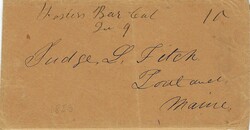 Bar Cal 10
9
Judge. L. Fitch
Portland
Maine